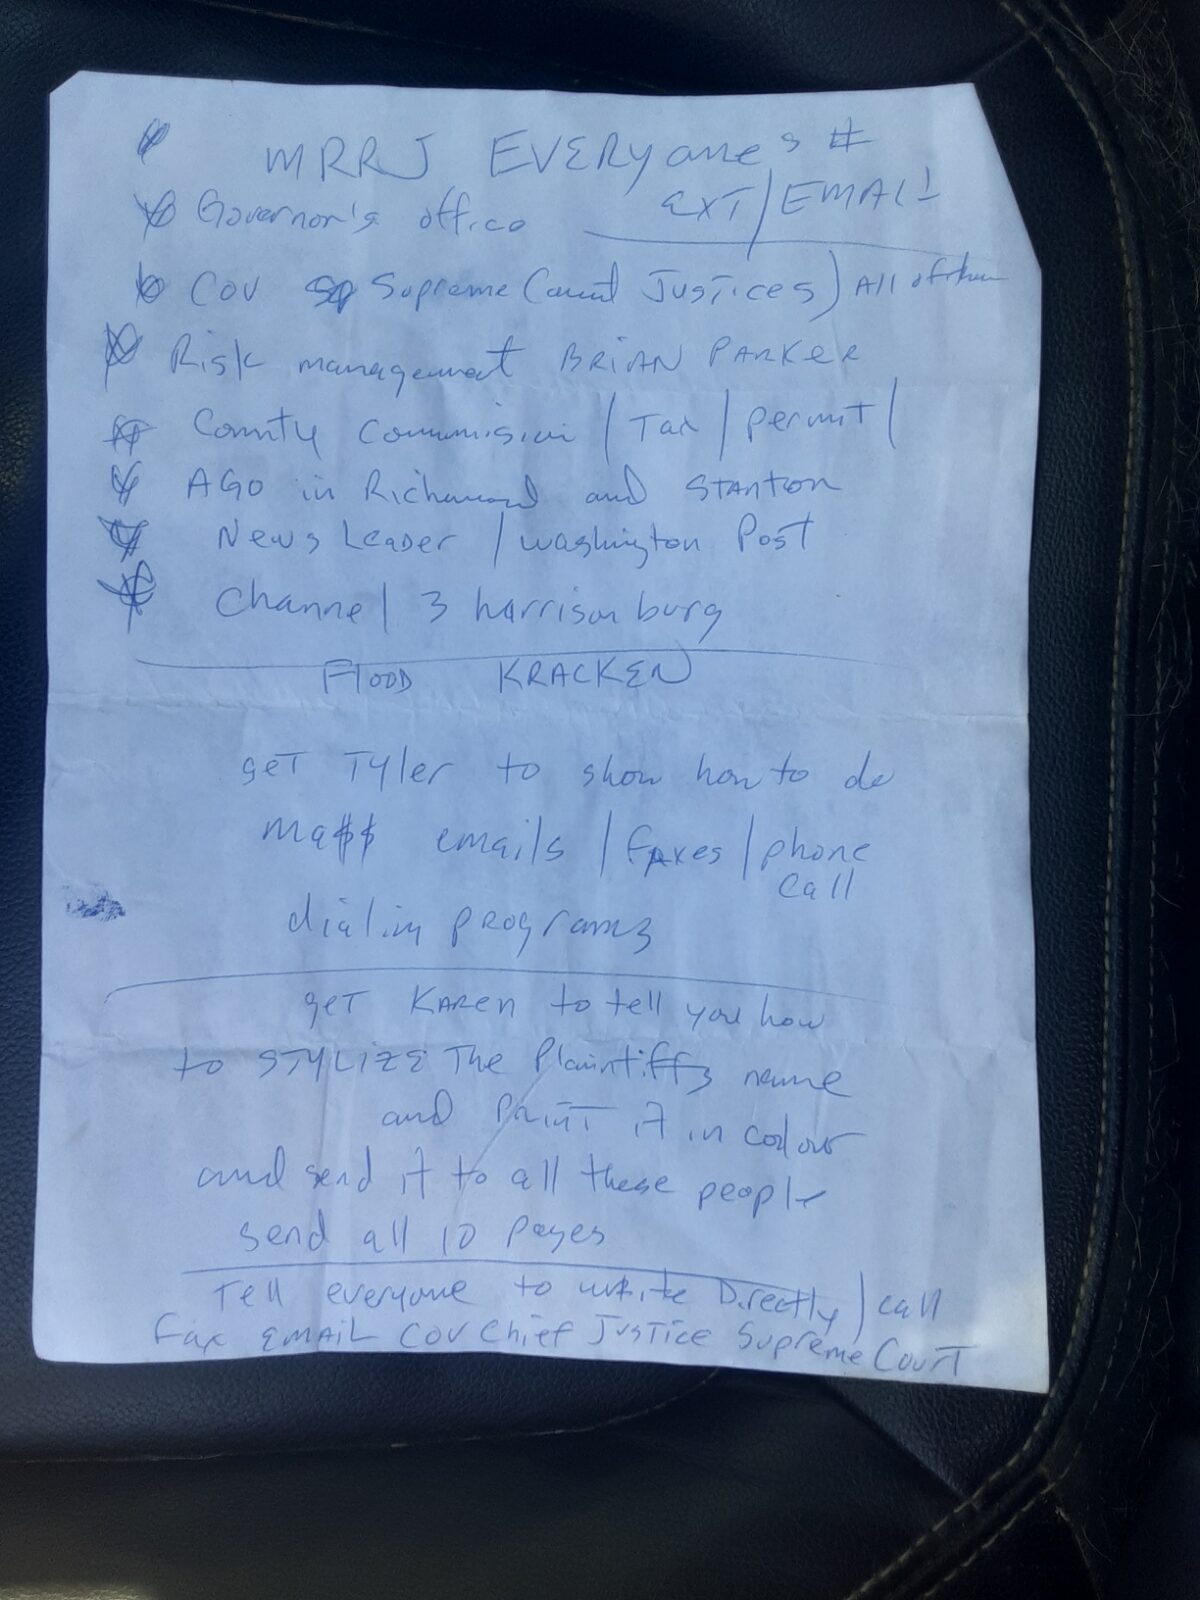 MRRJ EVERYone's #
EXT / EMAIL
Governor's office
COV Supreme Court Justices) All of them
Risk management BRIAN PARKER
County Commision / Tax / permit /
AGO in Richmond and STANTON
News Leader / washington Post
Channel 3 harrisonburg
Flood KRACKEN
get Tyler to show how to do
ma$$ emails / faxes / phone
call
dialing programs
get KAREN to tell you how
to STYLIZE The Plaintiffs name
and PRINT it in colour
and send it to all these people
send all 10 pages
Tell everyone to write Directly / call
Fax EMAIL COV Chief JUSTICE Supreme Court